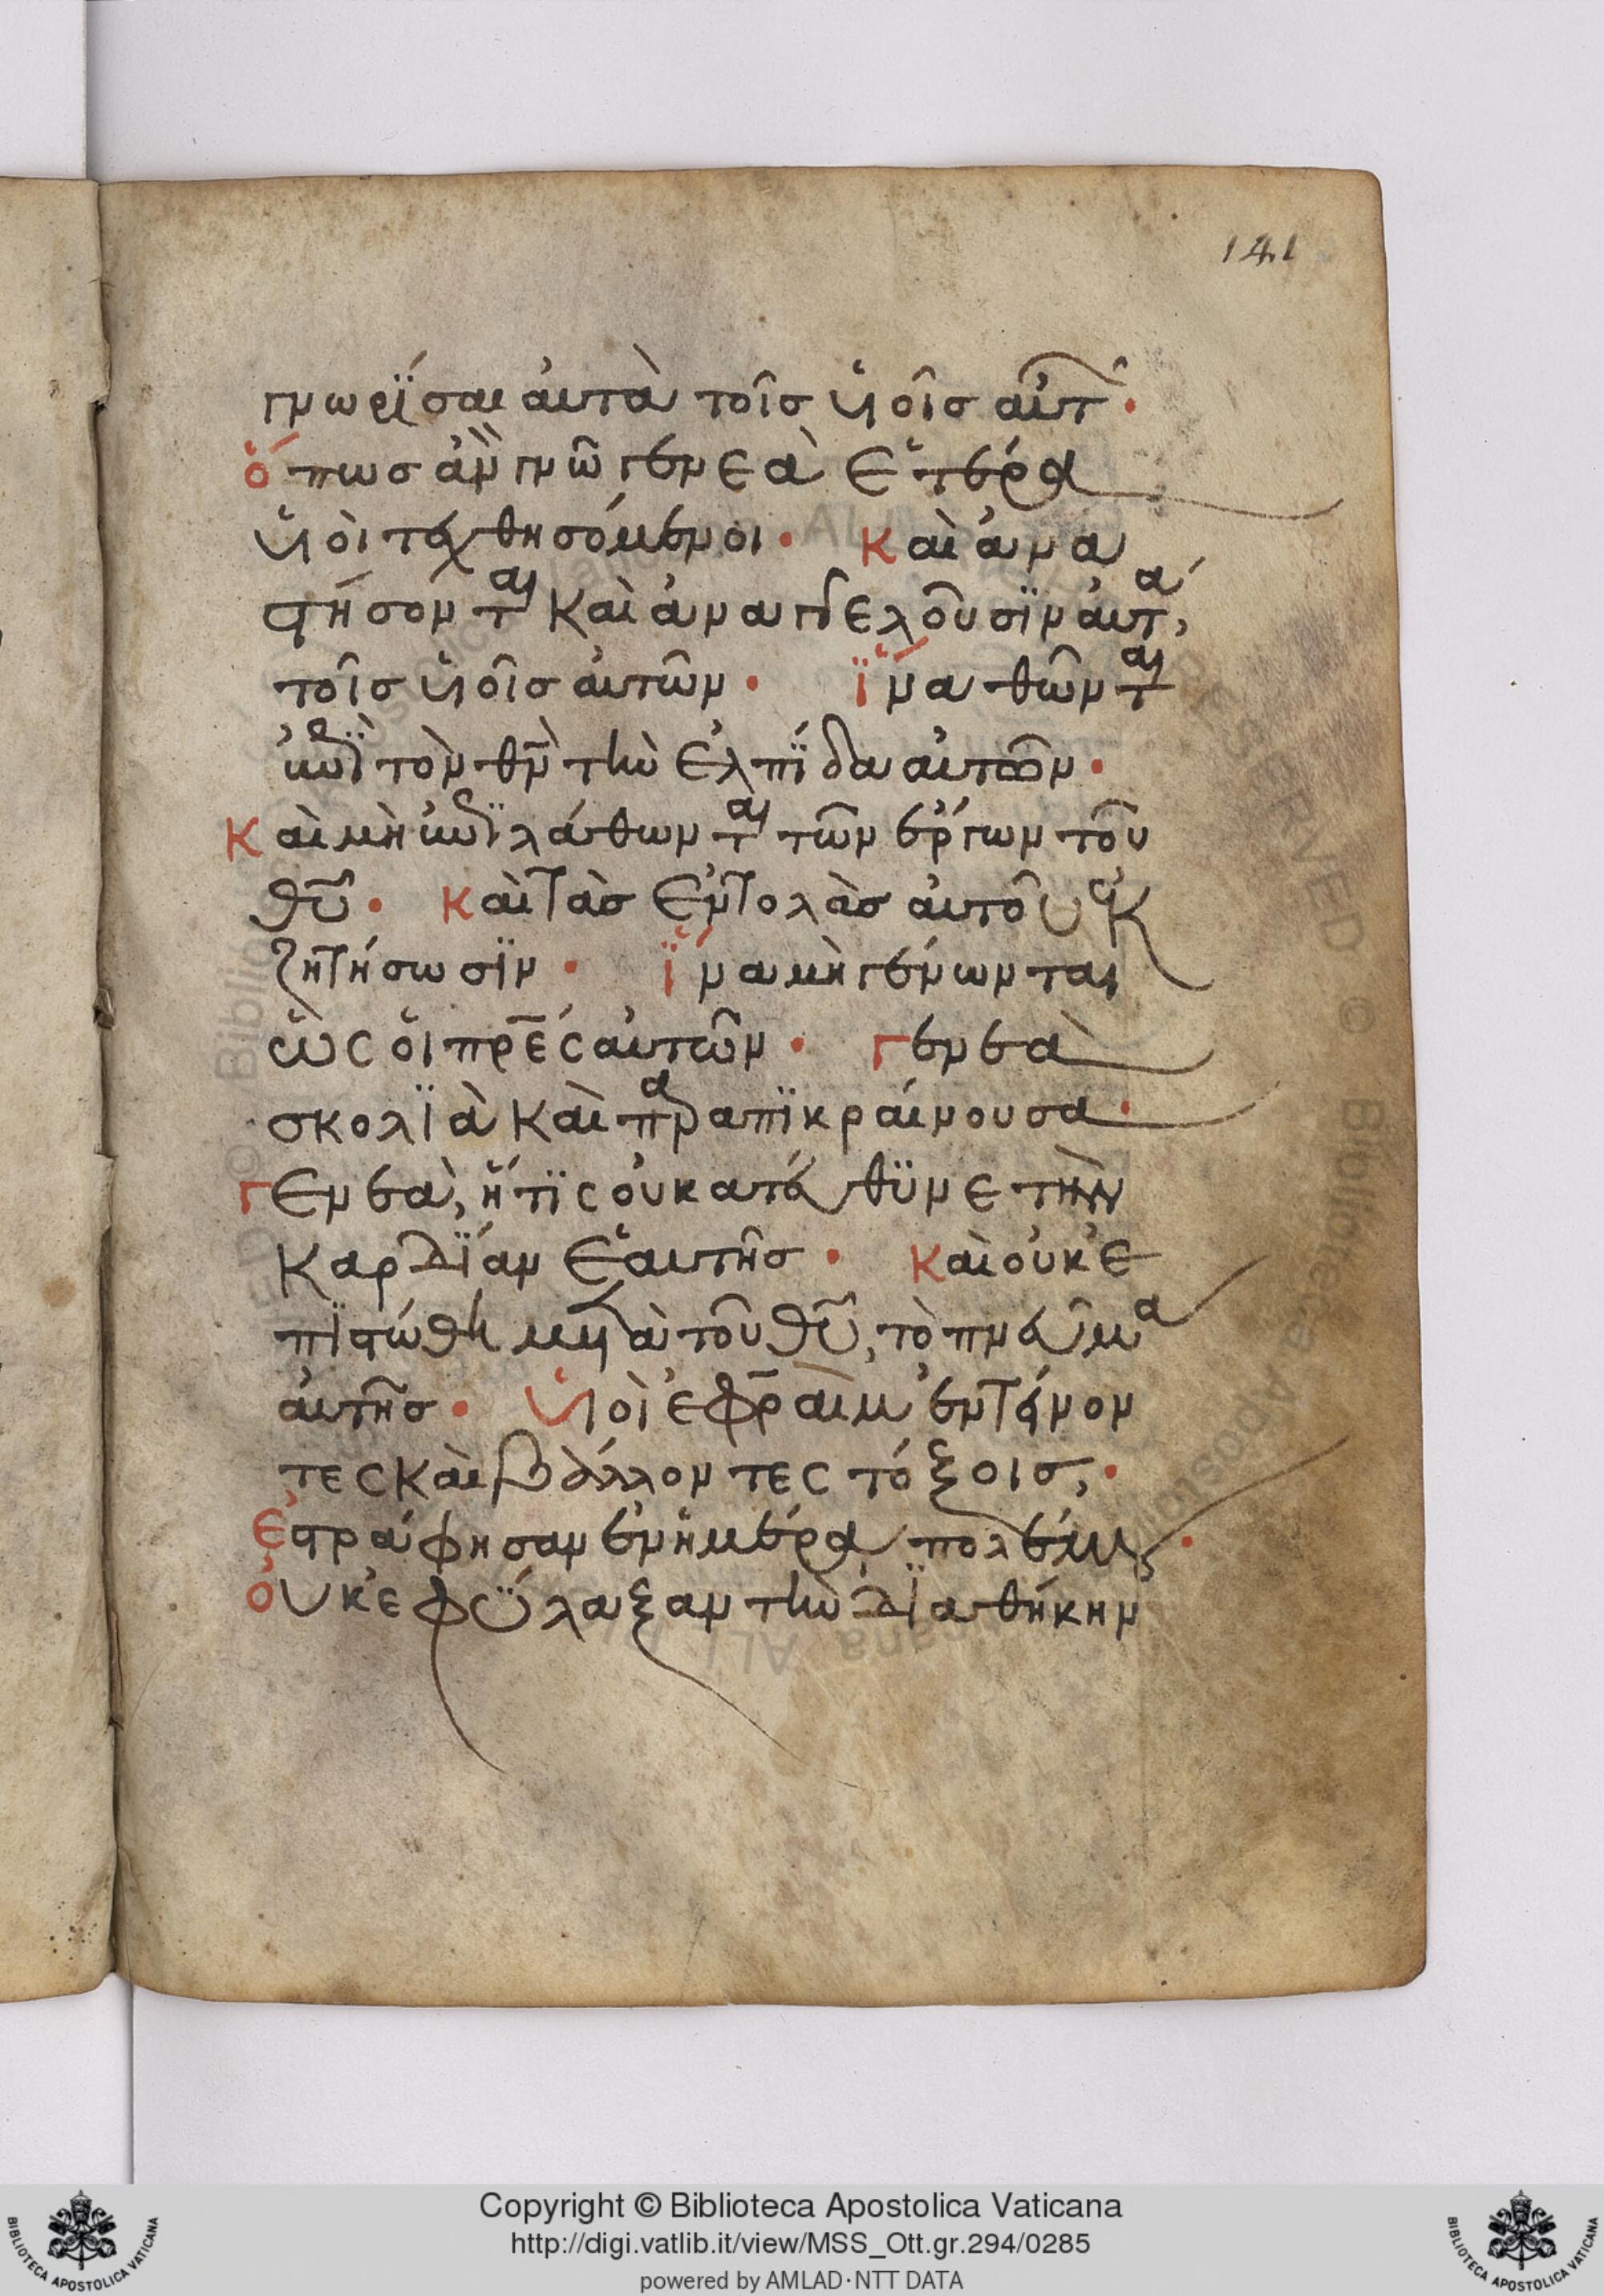 141
γνωρΐσαι ἀυτὰ τοῖσ ὑιοῖσ ἀυτ῀·
ὅπωσ ἂν γνῶ γενεὰ ἑτέρα
ὑιὸι τεχθησόμενοι· Και ἀνα
στήσονταϊ Και ἀναγγελοῦσϊν ἀυτά,
τοῖσ ὑιοῖσ ἀυτῶν· ἵνα θῶνται
ἐπὶ τὸν θν̄ τὴν ἐλπΐδα ἀυτῶν·
Και μὴ ἐπιλάθωνται τῶν ἔργων τοῦ
θῡ· Και τὰσ ἐντολὰσ ἀυτοῦ ἐκ
ζητήσωσϊν· ἵνα μὴ γένωνται
ὡς ὁι πρ̄ες ἀυτῶν· γενεὰ
σκολϊὰ Και παραπϊκραίνουσα·
γενεὰ, ἥτϊς ὀυ κατέυθϋνε τὴν
Καρδΐαν ἑαυτῆσ· Και ὀυκ ἐ
πϊστώθη μετὰ τοῦ θῡ, τὸ πνεῦμα
ἀυτῆσ· Ὑιὸι ἐφραὶμ ἐντείνον
τες Και βάλλοντες τόξοισ,·
Ἐστράφησαν ἐν ἡμέρα πολέμου·
Ὀυκ ἐφΰλαξαν τὴν δϊαθήκην
Copyright © Biblioteca Apostolica Vaticana
http://digi.vatlib.it/view/MSS_Ott.gr.294/0285
powered by AMLAD·NTT DATA
BIBLIOTECA APOSTOLICA VATICANA
BIBLIOTECA APOSTOLICA VATICANA